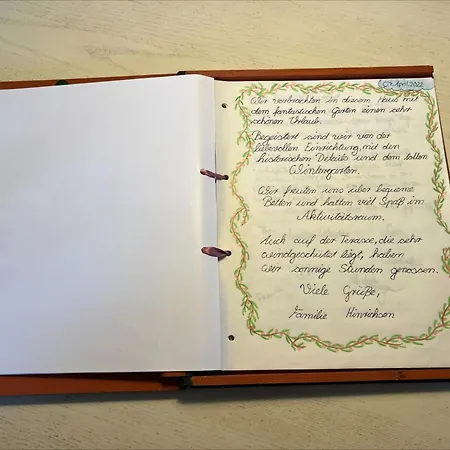 09. April 2022
Wir verbrachten in diesem Haus mit
dem fantastischen Garten einen sehr
schönen Urlaub.
Begeistert sind wir von der
liebevollen Einrichtung, mit den
historischen Details und dem tollen
Wintergarten.
Wir freuten uns über bequeme
Betten und hatten viel Spaß im
Aktivitätsraum.
Auch auf der Terasse, die sehr
windgeschützt liegt, haben
wir sonnige Stunden genossen.
Viele Grüße,
Familie Hinrichsen